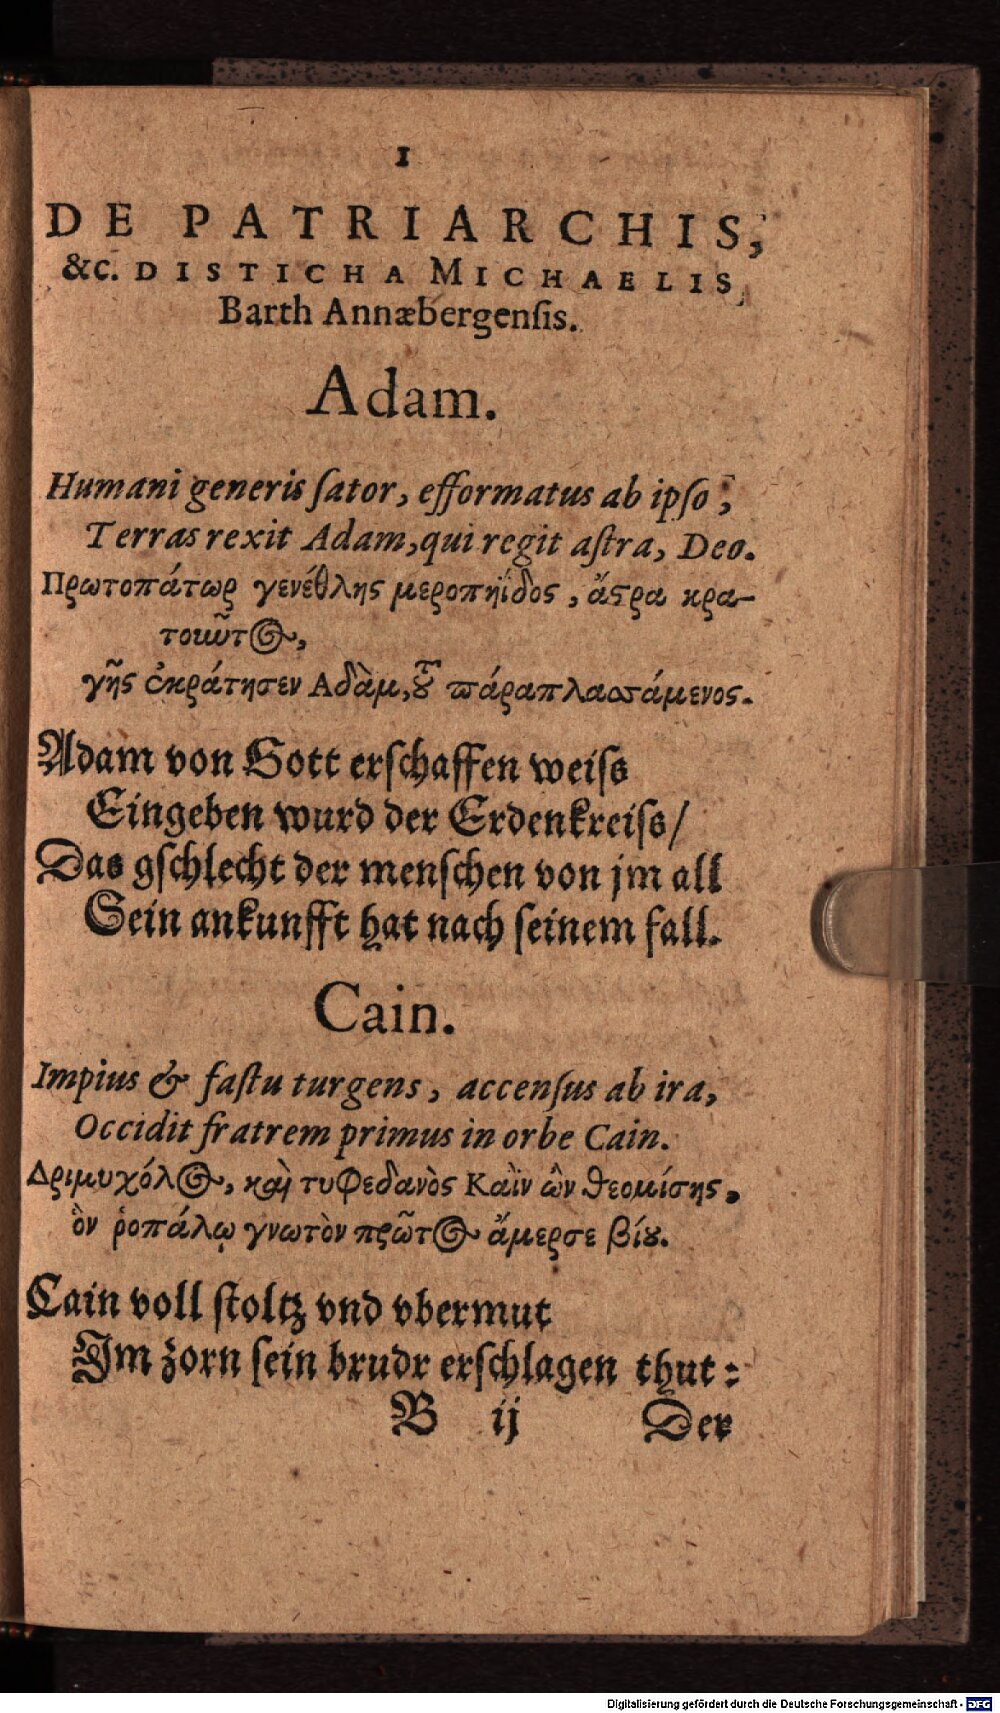 1
DE PATRIARCHIS,
&c. DISTICHA MICHAELIS
Barth Annæbergenſis.
Adam.
Humani generis ſator, efformatus ab ipſo,
Terras rexit Adam, qui regit aſtra, Deo.
Πρωτοπάτωρ γενέθλης μεροπηΐδος, ἄϛρα κρα-
τοιῶτος,
γῆς ἐκράτησεν Αδὰμ, τȣ͂ πάρα πλασσάμενος.
Adam von Gott erſchaffen weiſs
Eingeben wurd der Erdenkreiſs/
Das gſchlecht der menſchen von jm all
Sein ankunfft hat nach ſeinem fall.
Cain.
Impius & faſtu turgens, accenſus ab ira,
Occidit fratrem primus in orbe Cain.
Δριμυχόλος, καὶ τυφεδανὸς Καῒν ὢν θεομίσης,
ὃν ῥοπάλῳ γνωτὸν πρῶτος ἄμερσε βίȣ.
Cain voll ſtoltz vnd vbermut
Im zorn ſein brudr erſchlagen thut:
B ij Der
Digitalisierung gefördert durch die Deutsche Forschungsgemeinschaft - DFG